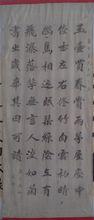 玉壺買春賞雨茅屋座中
佳士左右修竹白雲初晴
幽鳥相逐眠琴綠陰上有
飛瀑落花無言人淡如菊
書之歲華其曰可讀